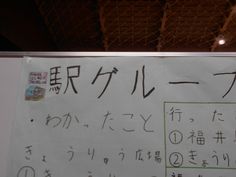 駅グループ
・わかったこと
きょうりゅう広場
行った
①福井
②きょうり